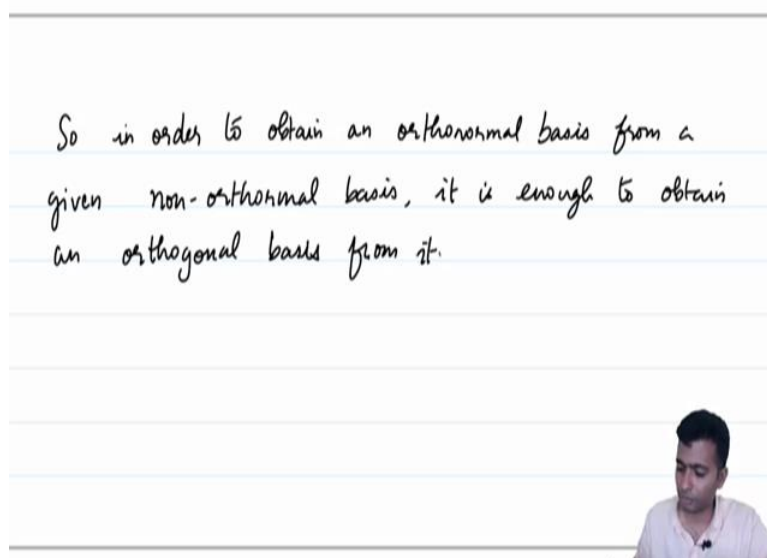 So in order to obtain an orthonormal basis from a
given non-orthormal basis, it is enough to obtain
an orthogonal basis from it.